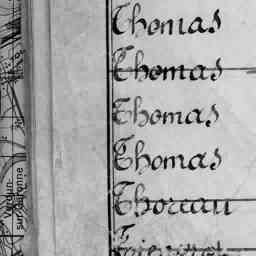 Thomas
Thomas
Thomas
Thomas
Thoreau
Verdun
sur Garonne